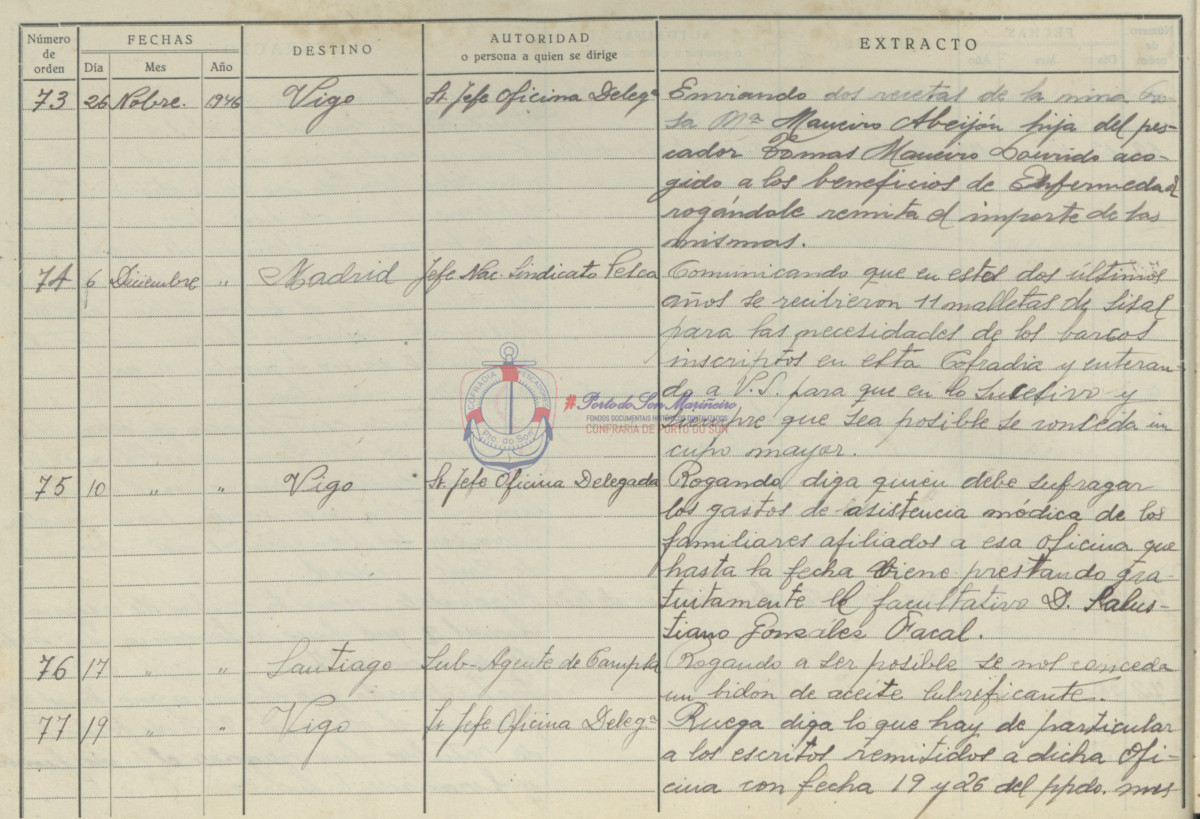 Número de orden
FECHAS
Día Mes Año
DESTINO
AUTORIDAD
o persona a quien se dirige
EXTRACTO
73 26 Nobre. 1946 Vigo Sr. Jefe Oficina Delegª Enviando dos recetas de la nina Ro-
sa Mª Maneiro Abeijón hija del pes-
cador Tomas Maneiro Lourido aco-
gido a los beneficios de Enfermedad
rogándole remita el importe de las
mismas.
74 6 Diciembre " Madrid Jefe Nac. Sindicato Pesca Comunicando que en estos dos últimos
años se recibieron 11 malletas de sisal
para las necesidades de los barcos
inscriptos en esta Cofradia y enteran-
do a V.S. para que en lo sucesivo y
siempre que sea posible se conceda un
cupo mayor.
75 10 " " Vigo Sr. Jefe Oficina Delegada Rogando diga quien debe sufragar
los gastos de asistencia módica de los
familiares afiliados a esa oficina que
hasta la fecha viene prestando gra-
tuitamente el facultativo D. Salus-
tiano González Facal.
76 17 " " Santiago Sub-Agente de Campsa Rogando a ser posible se nos conceda
un bidon de aceite lubrificante.
77 19 " " Vigo Sr. Jefe Oficina Delegª Ruega diga lo que hay de particular
a los escritos remitidos a dicha Ofi-
cina con fecha 19 y 26 del ppdo. mes
COFRADIA PESCADORES
Pto. do Son
#PortodoSonMariñeiro
FONDOS DOCUMENTAIS HISTÓRICOS DIGITALIZADOS
CONFRARIA DE PORTO DO SON